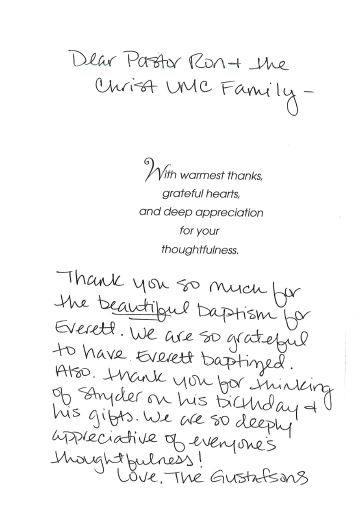 Dear Pastor Ron + the
Christ UMC Family -
With warmest thanks,
grateful hearts,
and deep appreciation
for your
thoughtfulness.
Thank you so much for
the beautiful baptism for
Everett. We are so grateful
to have Everett baptized.
Also, thank you for thinking
of Stryder on his birthday +
his gifts. We are so deeply
appreciative of everyone's
thoughtfulness!
Love, The Gustafsons